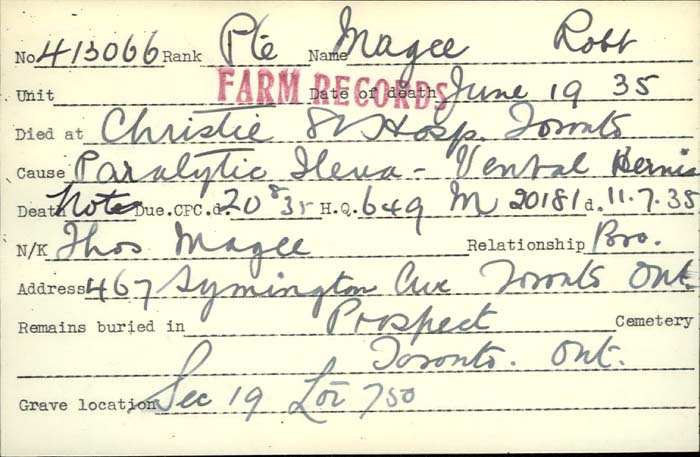 No 413066 Rank Pte Name Magee Robt
Unit FARM RECORDS Date of death June 19 35
Died at Christie St Hosp. Toronto
Cause Paralytic Ileus - Ventral Hernia
Death Not Due. CPC.d. 20 8 35 H.Q. 649 M 20181 d. 11.7.38
N/K Thos Magee Relationship Bro.
Address 467 Symington Ave Toronto Ont.
Remains buried in Prospect Cemetery
Toronto. Ont.
Grave location Sec 19 Lot 750